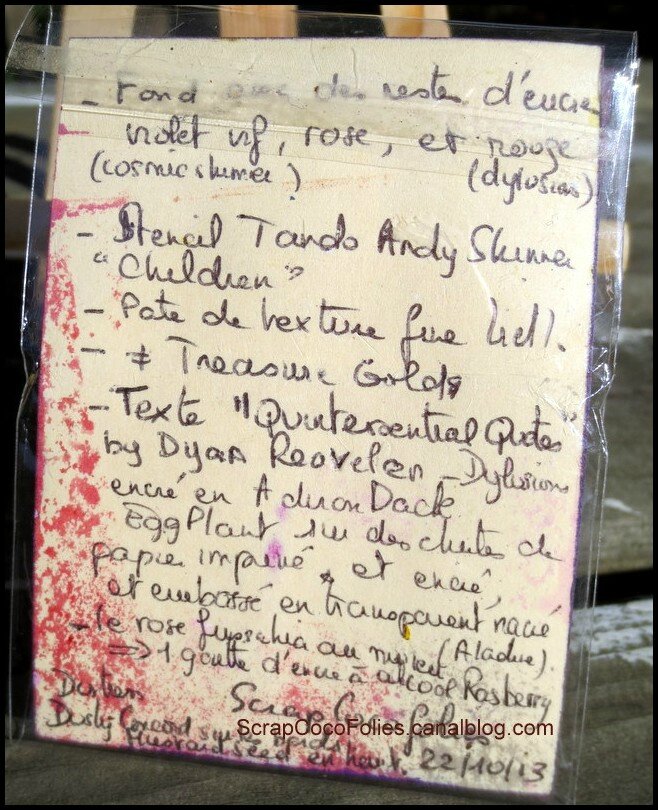 - Fond avec des restes d'encre
violet vif, rose, et rouge
(cosmic shimmer) (dylusions)
- Stencil Tando Andy Skinner
"Children"
- Pate de texture fine Liell.
- ≠ Treasure Golds
- Texte "Quintessential Quotes"
by Dyan Reaveley - Dylusions
encré en Adiron Dack
Egg Plant sur des chutes de
papier imprimé, et encré,
et embossé en transparent nacré
- le rose fupschia au milieu (Aladine).
⇒ 1 goutte d'encre à alcool Rasberry
Distress
Scrap Coco folies
ScrapCocoFolies.canalblog.com
Dusty Concord sur bords
Mustard seed en haut. 22/10/13